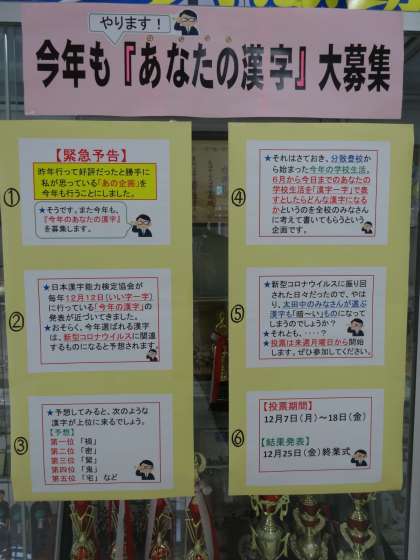 やります！
今年も『あなたの漢字』大募集
①
【緊急予告】
昨年行って好評だったと勝手に
私が思っている「あの企画」を
今年も行うことにしました。
★そうです。また今年も、
『今年のあなたの漢字』
を募集します。
②
★日本漢字能力検定協会が
毎年12月12日（いい字一字）
に行っている「今年の漢字」の
発表が近づいてきました。
★おそらく、今年選ばれる漢字
は、新型コロナウイルスに関連
するものになると予想されます。
③
★予想してみると、次のような
漢字が上位に来るでしょう。
【予想】
第一位「禍」
第二位「密」
第三位「緊」
第四位「鬼」
第五位「宅」など
④
★それはさておき、分散登校か
ら始まった今年の学校生活。
6月から今日までのあなたの
学校生活を「漢字一字」で表
すとしたらどんな漢字になる
かというのを全校のみなさん
に考えて書いてもらうという
企画です。
⑤
★新型コロナウイルスに振り回
された日々だったので、やは
り、太田中のみなさんが選ぶ
漢字も「暗～い」ものになって
しまうのでしょうか？
★それとも、・・・・？
★投票は来週月曜日から開始
します。ぜひ参加してください。
⑥
【投票期間】
12月7日（月）～18日（金）
【結果発表】
12月25日（金）終業式